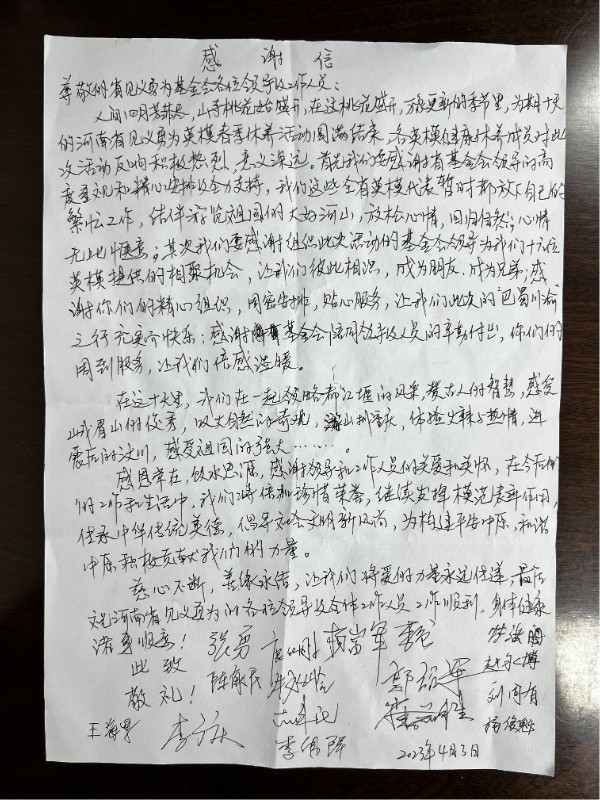 感谢信
尊敬的省见义勇为基金会各位领导及工作人员：
人间四月芳菲尽，山寺桃花始盛开，在这桃花盛开，万物更新的季节里，为期十天
的河南省见义勇为英模春季休养活动圆满结束，各英模健康休养成员对此
次活动反响积极热烈，意义深远，首先我们要感谢省基金会领导的高
度重视和精心安排及全力支持，我们这些全省英模代表暂时都放下自己的
繁忙工作，结伴游览祖国的大好河山，放松心情，回归自然，心情
无比惬意；其次我们要感谢组织此次活动的基金会领导为我们十六位
英模提供的相聚机会，让我们彼此相识，成为朋友，成为兄弟；感
谢你们的精心组织，周密安排，贴心服务，让我们此次的"巴蜀川渝"
之行充实而快乐；感谢基金会陪同领导及人员的辛勤付出，你们的
周到服务，让我们倍感温暖。
在这十天里，我们在一起领略都江堰的风采，赞古人的智慧，感受
峨眉山的俊秀，叹大自然的奇观，山城重庆，体验火辣与热情，进
震后的汶川，感受祖国的强大………。
感恩常在，饮水思源，感谢领导和工作人员的关爱和关怀，在今后
的工作和生活中，我们将倍加珍惜荣誉，继续发挥模范表率作用，
传承中华传统美德，倡导文明新风尚，为构建平安中原，和谐
中原积极贡献我们的力量。
慈心不断，善缘永结，让我们将爱的力量永远传递。最后
祝河南省见义勇为的各位领导及全体工作人员工作顺利，身体健康
诸事顺意！
张勇
此致
敬礼！
李伟群
2023年4月3日